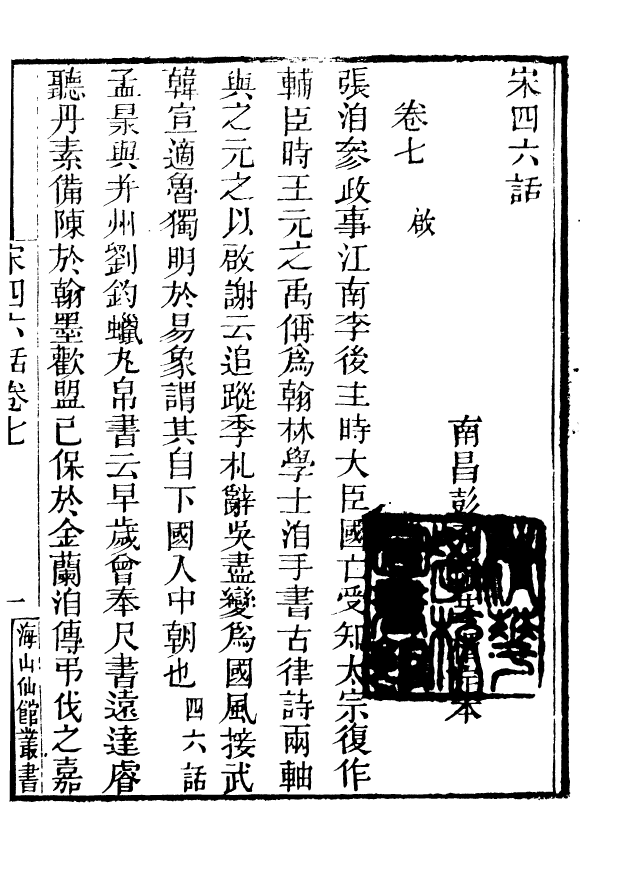 宋四六話
南昌彭
本
卷七 啟
張洎參政事江南李後主時大臣國亡受知太宗復作
輔臣時王元之禹偁爲翰林學士洎手書古律詩兩軸
與之元之以啟謝云追蹤季札辭吳盡變爲國風接武
韓宣適魯獨明於易象謂其自下國入中朝也 四六話
孟㫤與并州劉鈞蠟丸帛書云早歲曾奉尺書遠達睿
聽丹素備陳於翰墨歡盟已保於金蘭洎傳弔伐之嘉
宋四六話卷七
一
海山仙館叢書